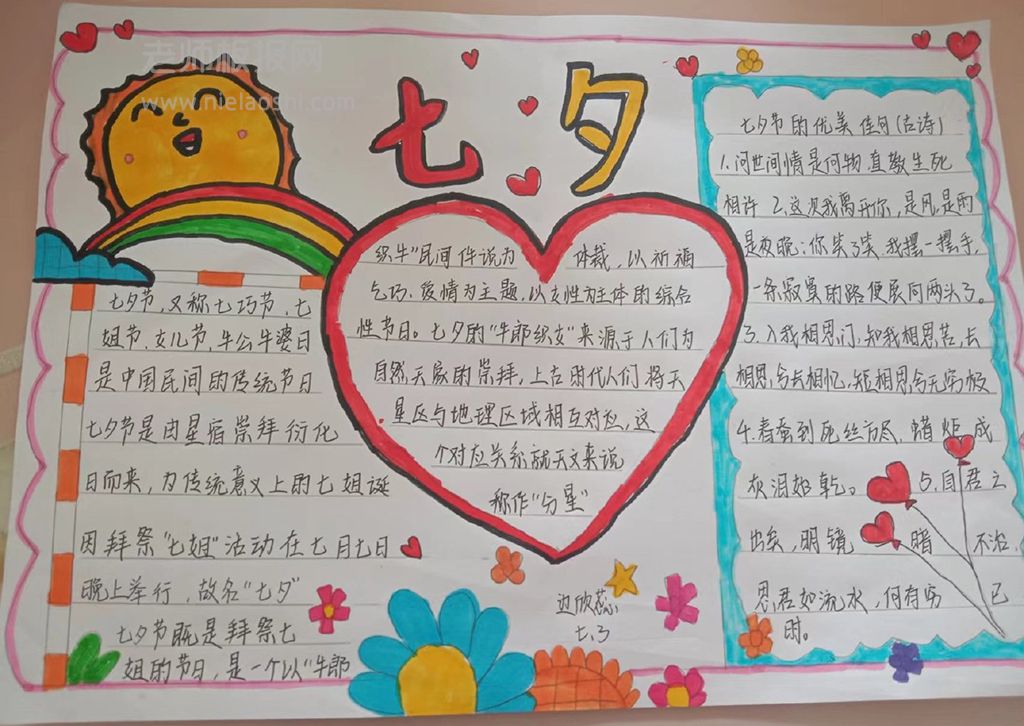 老师板报网
www.nielaoshi.com
七夕
七夕节，又称七巧节，七
姐节，女儿节，牛公牛婆日
是中国民间的传统节日
七夕节是由星宿崇拜衍化
日而来，为传统意义上的七姐诞
因拜祭“七姐”活动在七月七日
晚上举行，故名“七夕”
七夕节既是拜祭七
姐的节日，是一个以“牛郎
织牛”民间件说为 体裁，以祈福
乞巧、爱情为主题，以女性为主体的综合
性节日。七夕的“牛郎织女”来源于人们为
自然天象的崇拜，上古时代人们将天
星区与地理区域相互对应，这
个对应关系就天文来说
称作“分星”
七夕节的优美佳句(古诗)
1.问世间情是何物.直教生死
相许 2.这次我离开你，是风.是雨
是夜晚；你笑了笑.我摆一摆手，
一条寂寞的路便展向两头了。
3.入我相思门.知我相思苦，长
相思兮长相忆，短相思兮无穷极
4.春蚕到死丝方尽，蜡炬成
灰泪始乾。 5.自君之
出矣，明镜 暗 不治，
思君如流水，何有穷 已
时。
边欣蕊
七.3